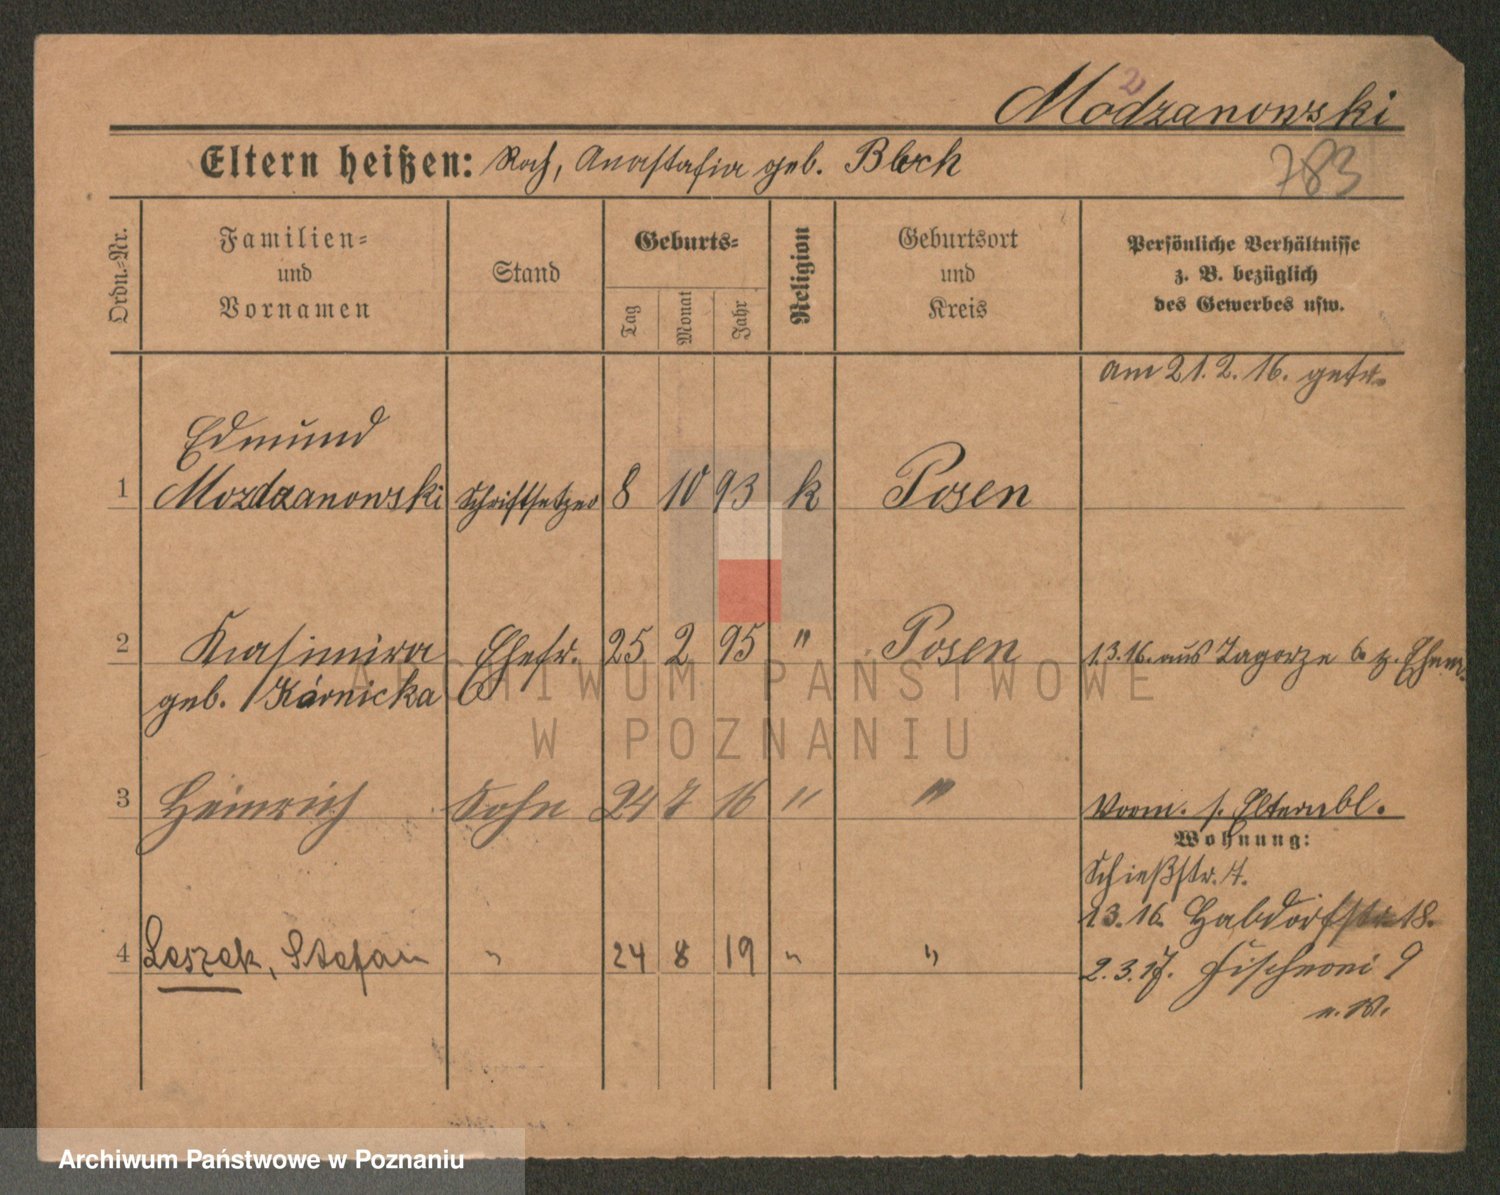 Modzanowski
z
Eltern heißen: Roch, Anastasia geb. Block
783
Ordn.-Nr.
Familien-
und
Vornamen
Stand
Geburts-
Tag
Monat
Jahr
Religion
Geburtsort
und
Kreis
Persönliche Verhältnisse
z. B. bezüglich
des Gewerbes usw.
am 21.2.16. getr.
Edmund
1 Mozdzanowski Schriftsetzer 8 10 93 k Posen
2 Kasimira Ehefr. 25 2 95 " Posen 1.3.16. aus Zagorze 6 z. Ehem.
geb. Karnicka
3 Heinrich Sohn 24 7 16 " " Vorm. s. Elternbl.
Wohnung:
Schießstr. 4.
1.3.16. Habdorfstr 18.
4 Leszek, Stefan " 24 8 19 " " 2.3.17. Fischerei 9
ARCHIWUM PAŃSTWOWE
W POZNANIU
Archiwum Państwowe w Poznaniu